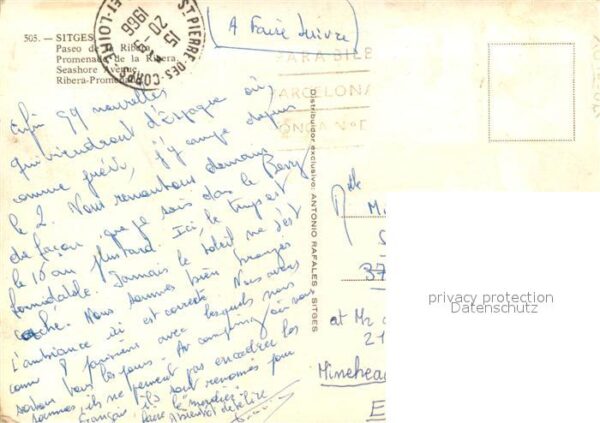 505. — SITGES
Paseo de la Ribera
Promenade de la Ribera.
Seashore Avenue
Ribera-Promenade
ST PIERRE-DES-CORPS
15
20-8
1966
ET-LOIRE
A Faire suivre
PARA BILB
BARCELONA
Enfin qq nouvelles
qui viendront d'Espagne où
comme prévu, j'y campe depuis
le 2. Nous remontons demain
de façon que je sois dans le Berry
le 15 au plus tard. Ici, le temps est
formidable. Jamais le soleil ne s'est
caché. Nous sommes bien bronzés
L'ambiance ici est correcte. Nous avons
connu 8 parisiens avec lesquels nous
sortons tous les jours. Au camping où nous
sommes, ils ne peuvent pas encadrer les
Français, ils sont renommés pour
faire le
Abientôt
Distribuidor exclusivo: ANTONIO RAFALES - SITGES
Mlle
M
S
37
at Mr
21
Minehead
E
privacy protection
Datenschutz